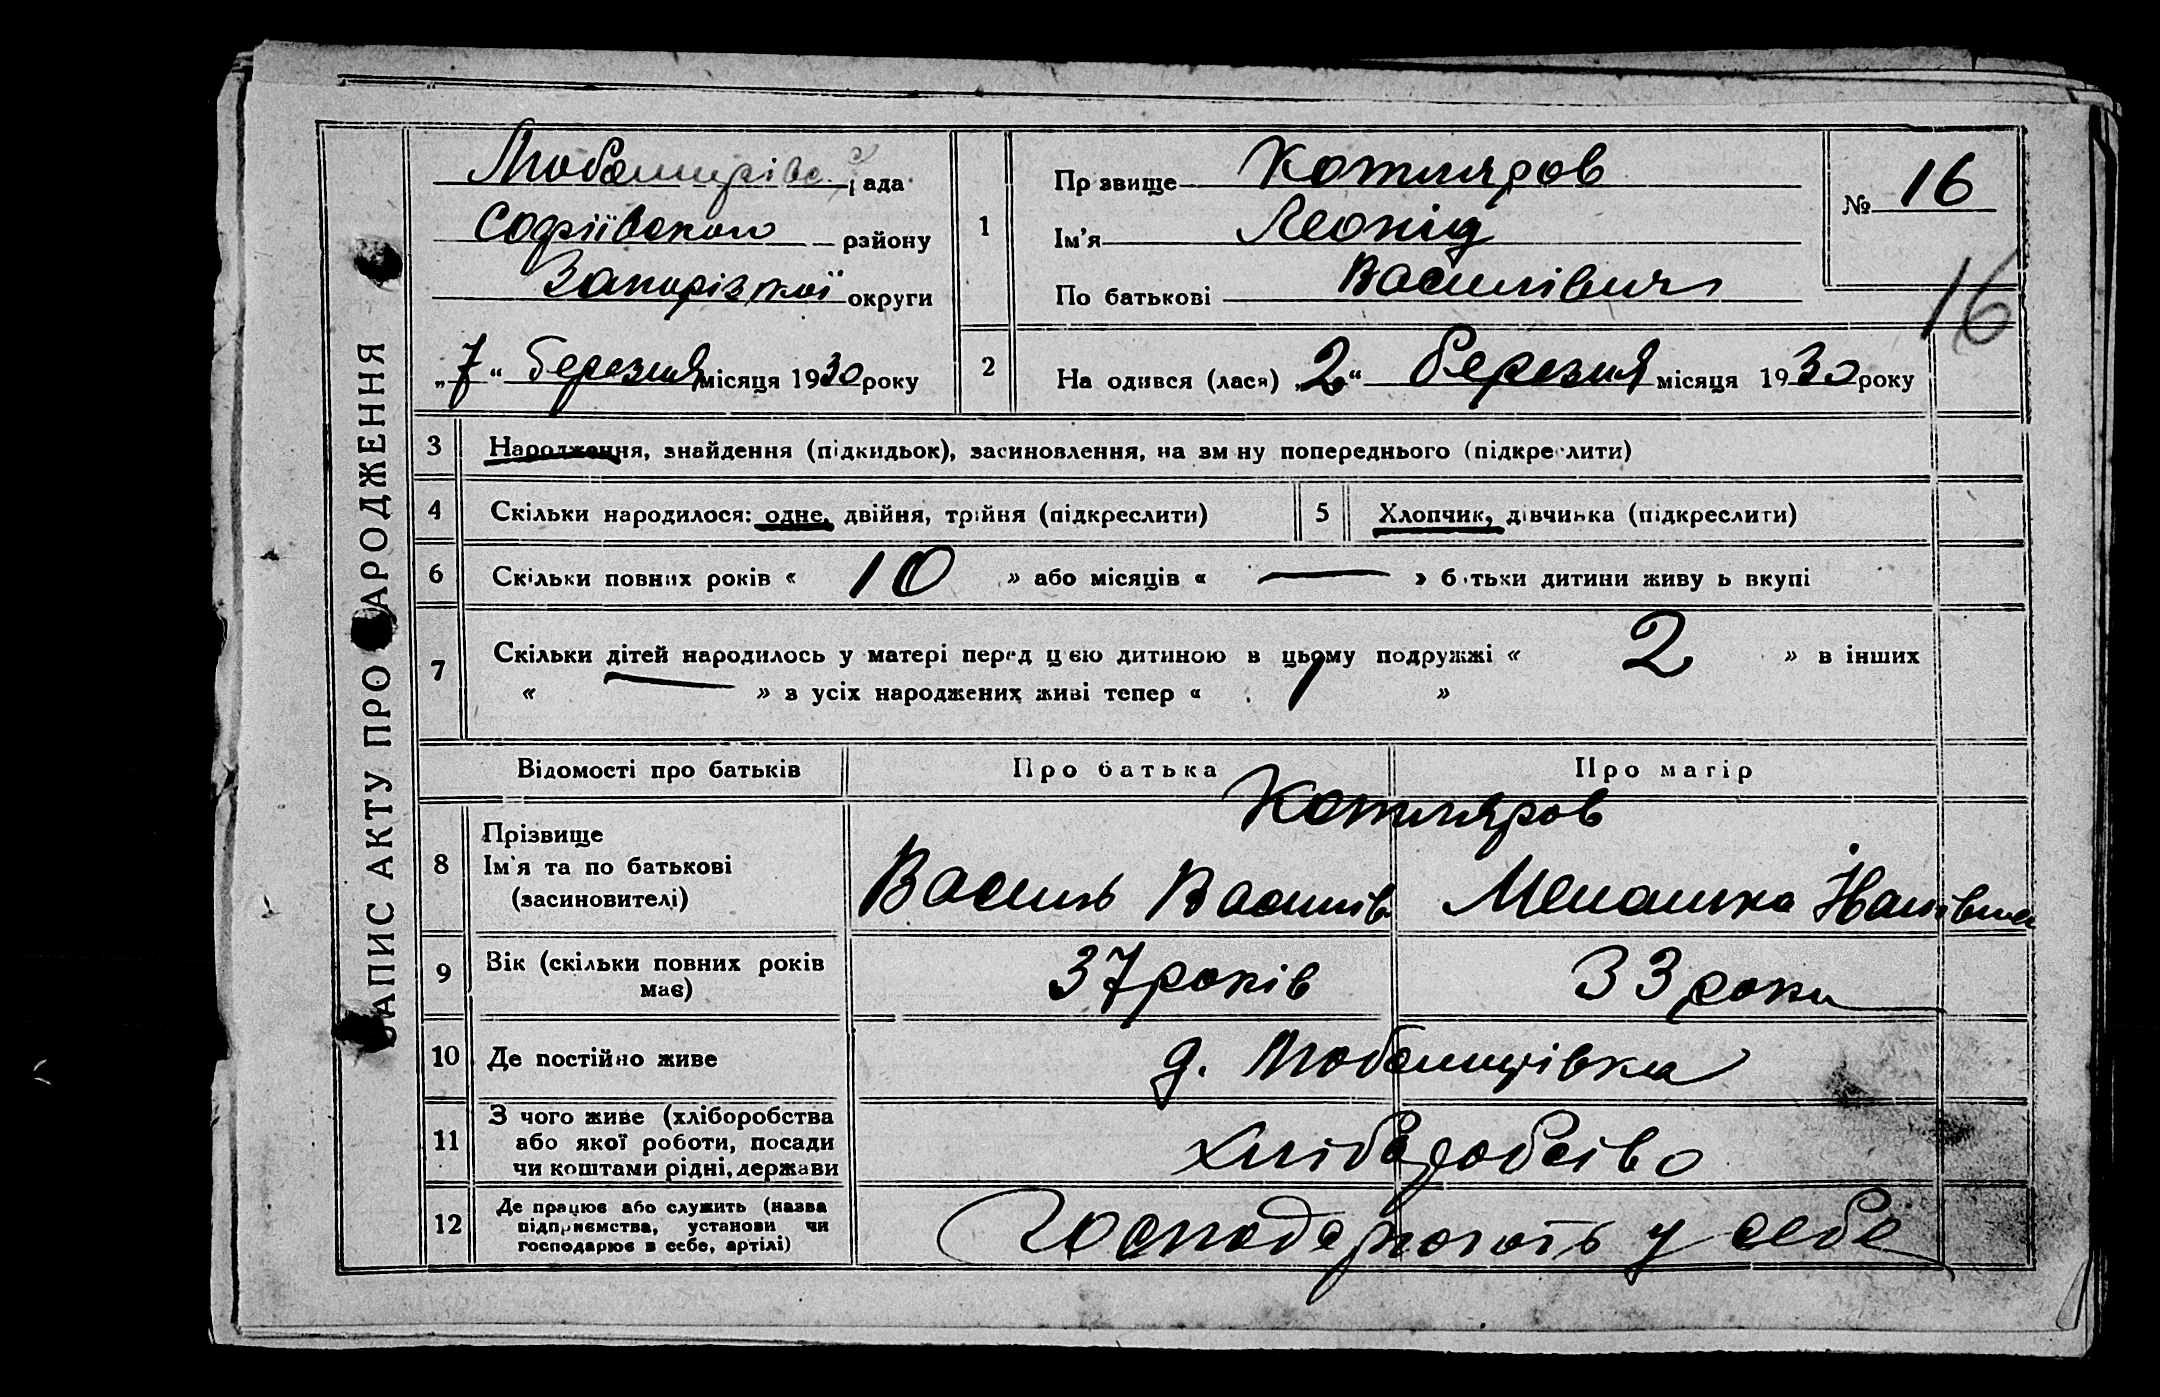 ЗАПИС АКТУ ПРО НАРОДЖЕННЯ
Любомирівс. рада
Софіївського району
Запорізької округи
„7“ березня місяця 1930 року
1
Прзвище Котляров
Ім'я Леонід
По батькові Васильович
№ 16
16
2
На одився (лася) „2“ березня місяця 1930 року
3 Народження, знайдення (підкидьок), засиновлення, на зм ну попереднього (підкреслити)
4 Скільки народилося: одне, двійня, трійня (підкреслити)
5 Хлопчик, дівчинка (підкреслити)
6 Скільки повних років « 10 » або місяців « — » батьки дитини живу ь вкупі
7 Скільки дітей народилось у матері перед цією дитиною в цьому подружжі « 2 » в інших
« — » з усіх народжених живі тепер « 1 »
Відомості про батьків Про батька Про матір
8 Прізвище
Ім'я та по батькові
(засиновителі)
Котляров
Василь Василів Меланка Іванівна
9 Вік (скільки повних років
має)
37 років 33 роки
10 Де постійно живе
д. Любомирівка
11 З чого живе (хліборобства
або якої роботи, посади
чи коштами рідні, держави
хліборобсіво
12 Де працює або служить (назва
підприємства, установи чи
господарює в себе, артілі)
господарюють у себе